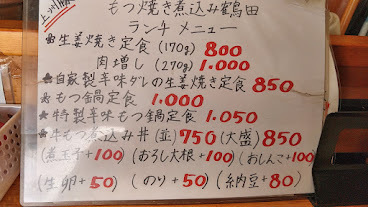 上州
もつ焼き煮込み鶴田
ランチ メニュー
生姜焼き定食 (170g) 800
肉増し (270g) 1.000
★自家製辛味ダレの生姜焼き定食 850
★もつ鍋定食 1.000
★特製辛味もつ鍋定食 1.050
★牛もつ煮込み丼 (並) 750 (大盛) 850
(煮玉子+100) (おろし大根+100) (おしんこ+100)
(生卵+50) (のり+50) (納豆+80)